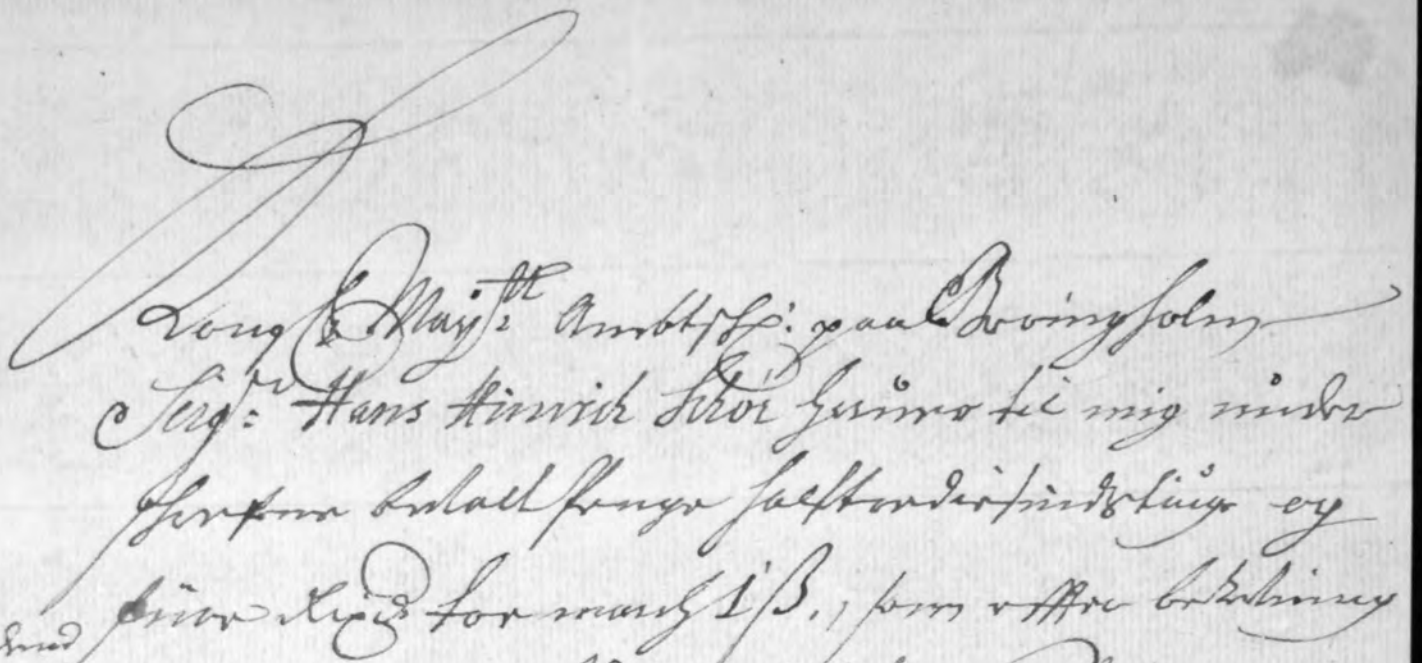 Kong: Maÿ:tt Ambtsk: paa Dronningholm
Sergt: Hans Hinrich Schor hafuer til mig under
skrefne betalt penge halftrediesindstiuge og
fiire Rixd: toe march 1 ß., som effter beKalining